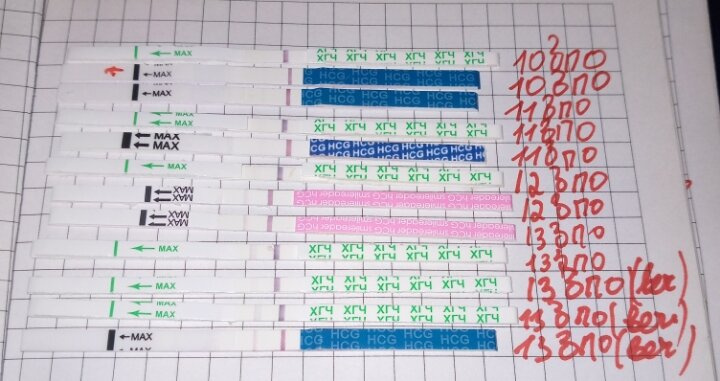 MAX ХГЧ ХГЧ ХГЧ ХГЧ ХГЧ ХГЧ 10 ЗПО
MAX HCG HCG HCG HCG HCG 10 ЗПО
MAX HCG HCG HCG HCG HCG 11 ЗПО
MAX ХГЧ ХГЧ ХГЧ ХГЧ ХГЧ ХГЧ 11 ЗПО
MAX MAX CG HCG HCG HCG HCG HCG HCG 11 ЗПО
MAX ХГЧ ХГЧ ХГЧ ХГЧ ХГЧ ХГЧ 12 ЗПО
MAX MAX smilereader hCG smilereader hCG 12 ЗПО
MAX MAX smilereader hCG smilereader hCG 13 ЗПО
MAX ХГЧ ХГЧ ХГЧ ХГЧ ХГЧ ХГЧ 13 ЗПО
MAX ХГЧ ХГЧ ХГЧ ХГЧ ХГЧ ХГЧ 13 ЗПО (веч)
MAX ХГЧ ХГЧ ХГЧ ХГЧ ХГЧ ХГЧ 13 ЗПО (веч)
MAX CG HCG HCG HCG HCG 13 ЗПО (веч)